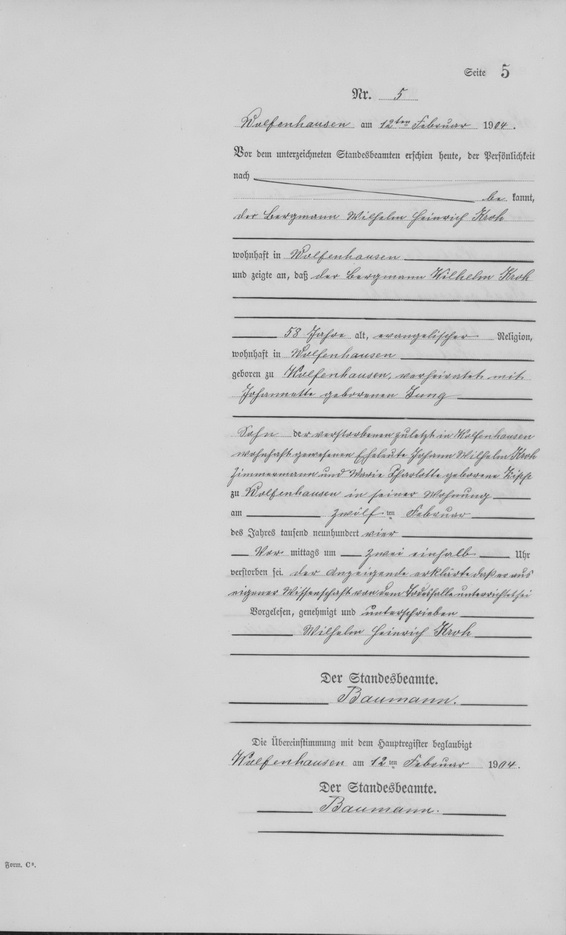 Seite 5
Nr. 5
Wolfenhausen am 12ten Februar 1904.
Vor dem unterzeichneten Standesbeamten erschien heute, der Persönlichkeit
nach
be kannt,
der Bergmann Wilhelm Heinrich Kroh
wohnhaft in Wolfenhausen
und zeigte an, daß der Bergmann Wilhelm Kroh
58 Jahre alt, evangelischer Religion,
wohnhaft in Wolfenhausen
geboren zu Wolfenhausen, verheiratet mit
Johannette geborenen Jung
Sohn der verstorbenen zuletzt in Wolfenhausen
wohnhaft gewesenen Eheleute Johann Wilhelm Kroh
Zimmermann und Marie Charlotte geborene
zu Wolfenhausen in seiner Wohnung
am zwölften Februar
des Jahres tausend neunhundert vier
Vor mittags um zwei einhalb Uhr
verstorben sei. der Anzeigende erklärte daß er aus
eigener Wissenschaft von dem Todesfalle unterrichtet sei
Vorgelesen, genehmigt und unterschrieben
Wilhelm Heinrich Kroh
Der Standesbeamte.
Baumann.
Die Übereinstimmung mit dem Hauptregister beglaubigt
Wolfenhausen am 12ten Februar 1904.
Der Standesbeamte.
Baumann.
Form. C*.